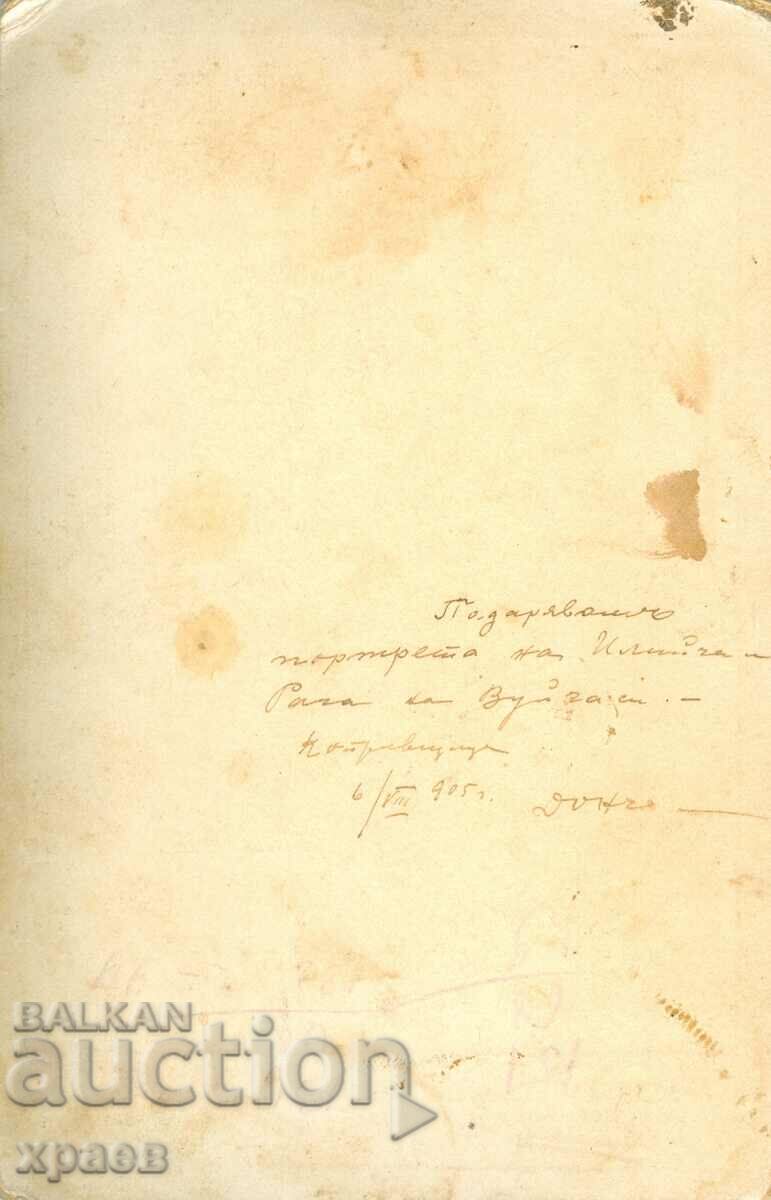 Подарявамъ
портрета на Илийча и
Рача на Вуйча си. –
Копревщица
6/VIII 905 г. Дончо
BALKAN
auction
храев